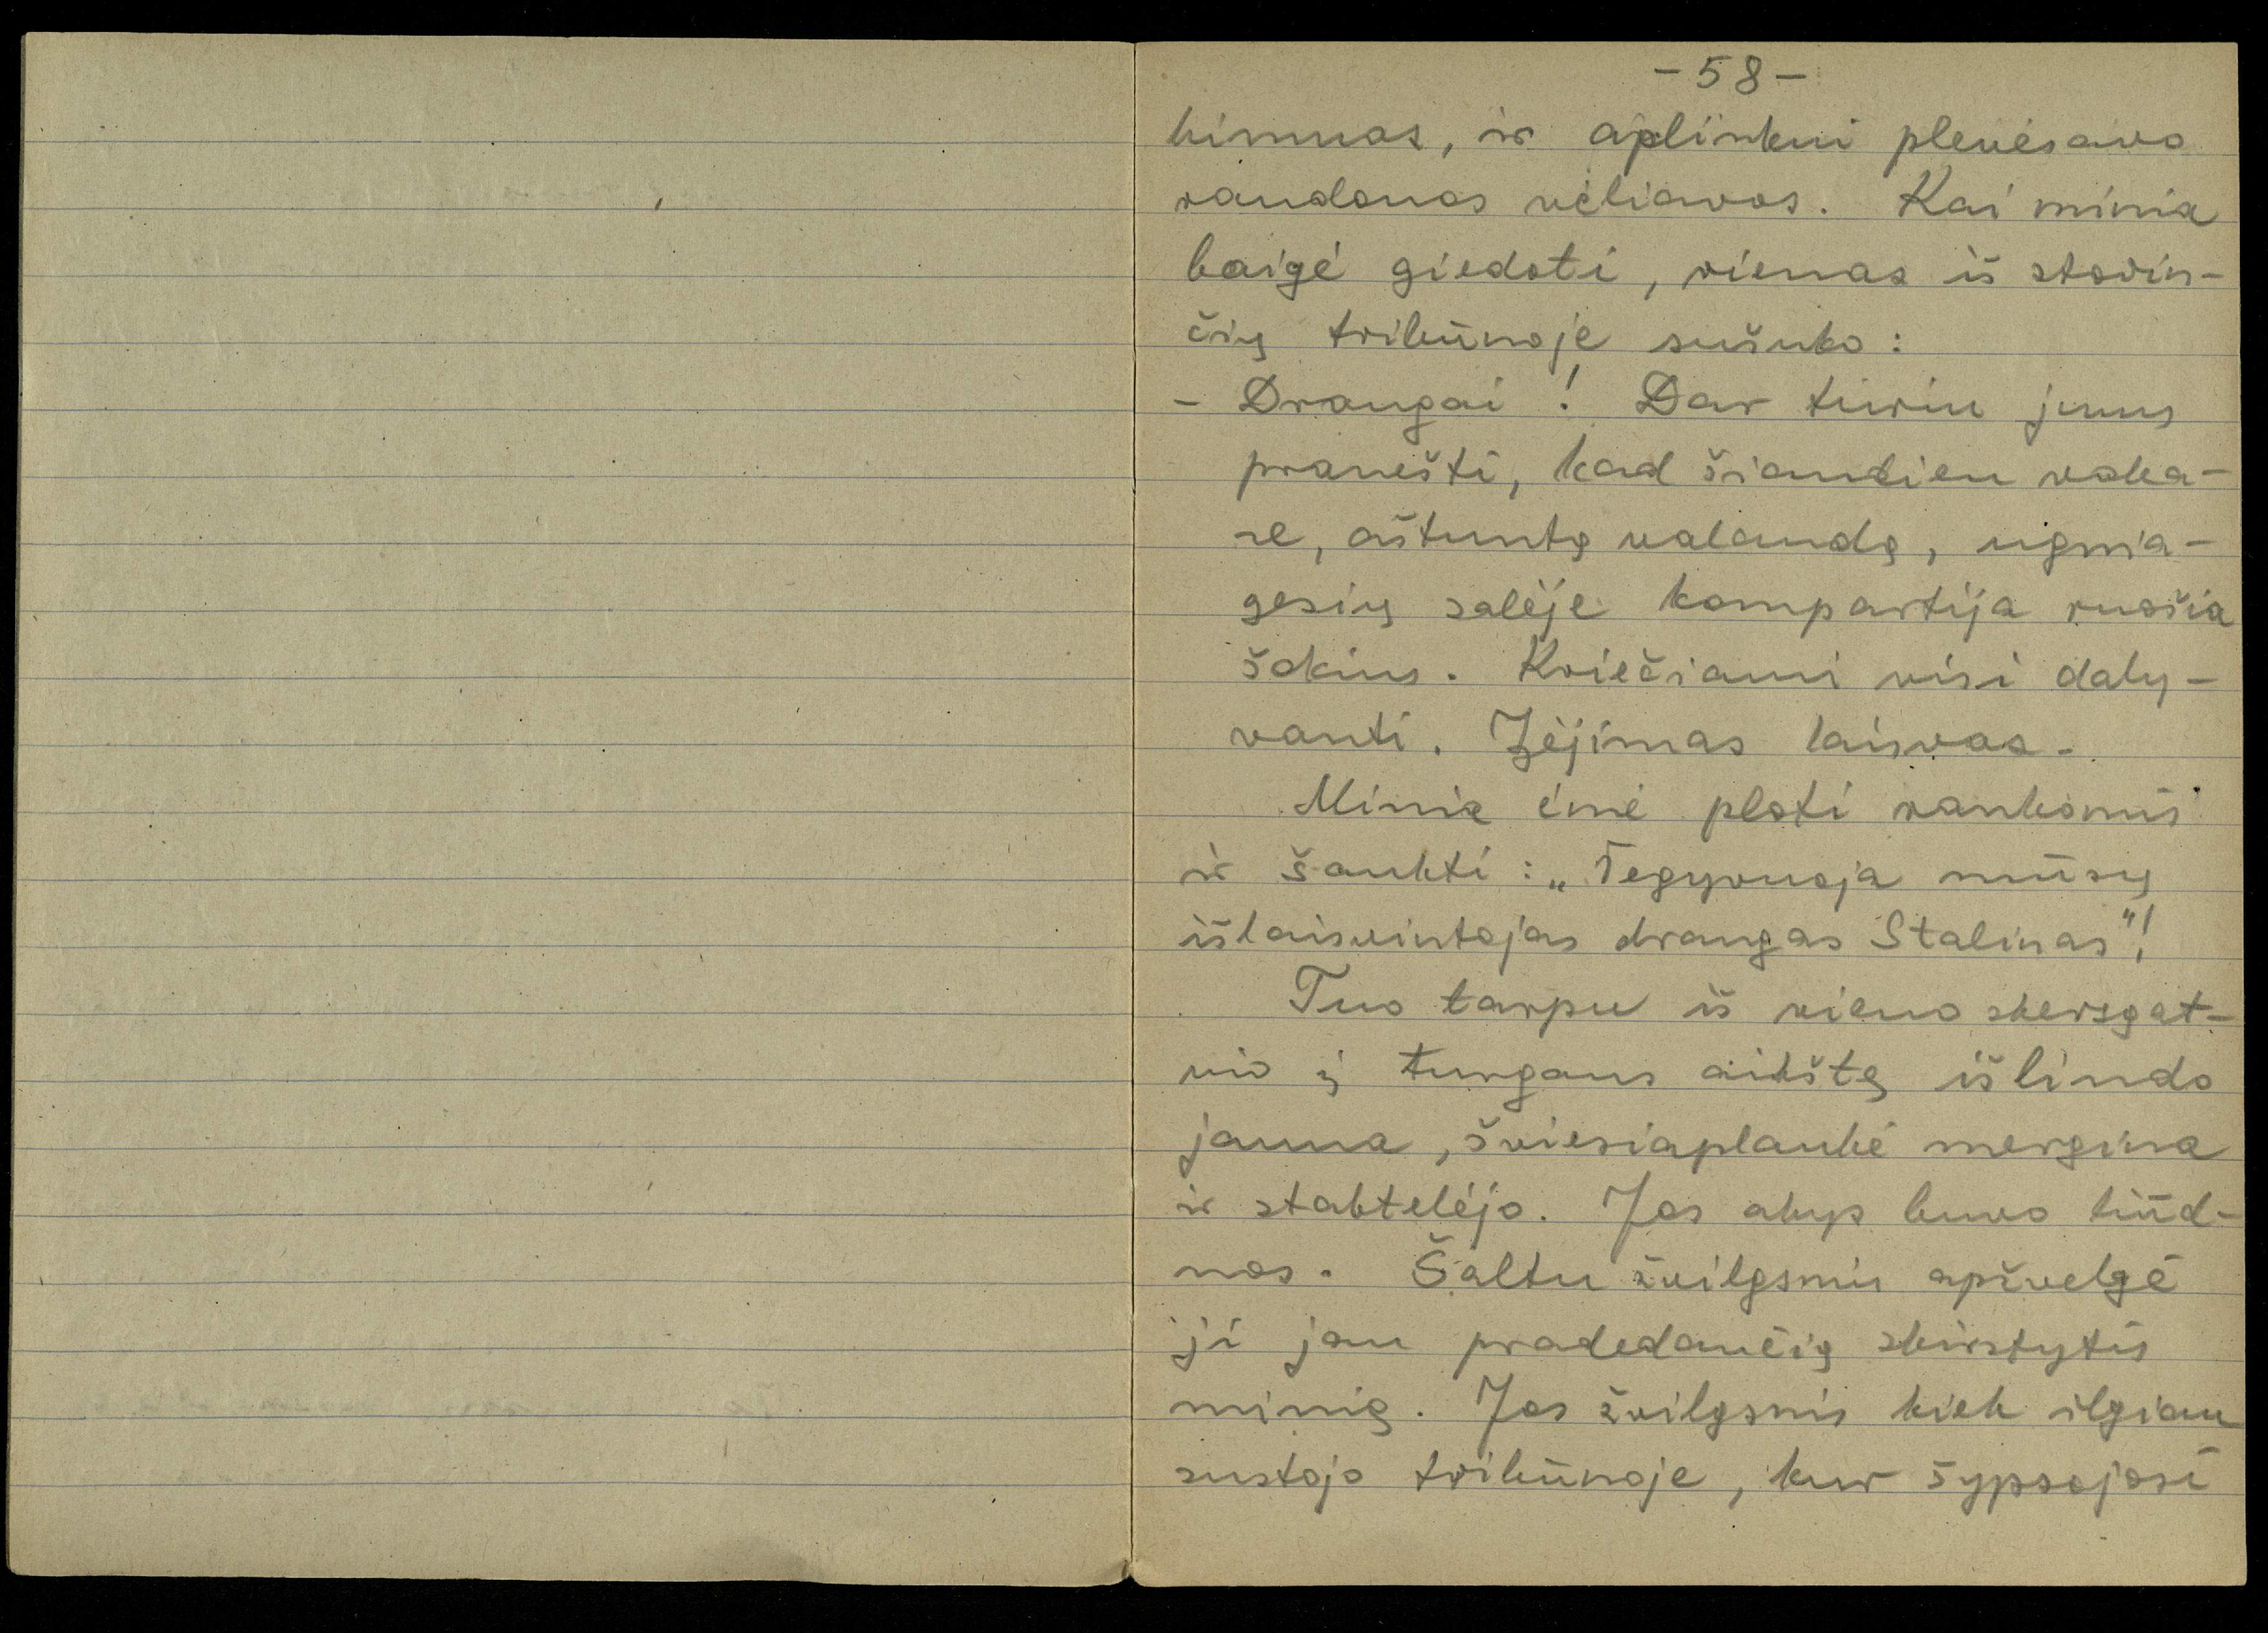 -58-
himnas, ir aplinkui plevėsavo
raudonos vėliavos. Kai minia
baigė giedoti, vienas iš stovin-
čių tribūnoje sušuko:
- Draugai! Dar turiu jums
pranešti, kad šiandien vaka-
re, aštuntą valandą, ugnia-
gesių salėje kompartija ruošia
šokius. Kviečiami visi daly-
vauti. Įėjimas laisvas.
Minia ėmė ploti rankomis
ir šaukti: „Tegyvuoja mūsų
išlaisvintojas draugas Stalinas"!
Tuo tarpu iš vieno skersgat-
vio į turgaus aikštę išlindo
jauna, šviesiaplaukė mergina
ir stabtelėjo. Jos akys buvo liūd-
nos. Šaltu žvilgsniu apžvelgė
ji jau pradedančią skirstytis
minią. Jos žvilgsnis kiek ilgiau
sustojo tribūnoje, kur šypsojosi